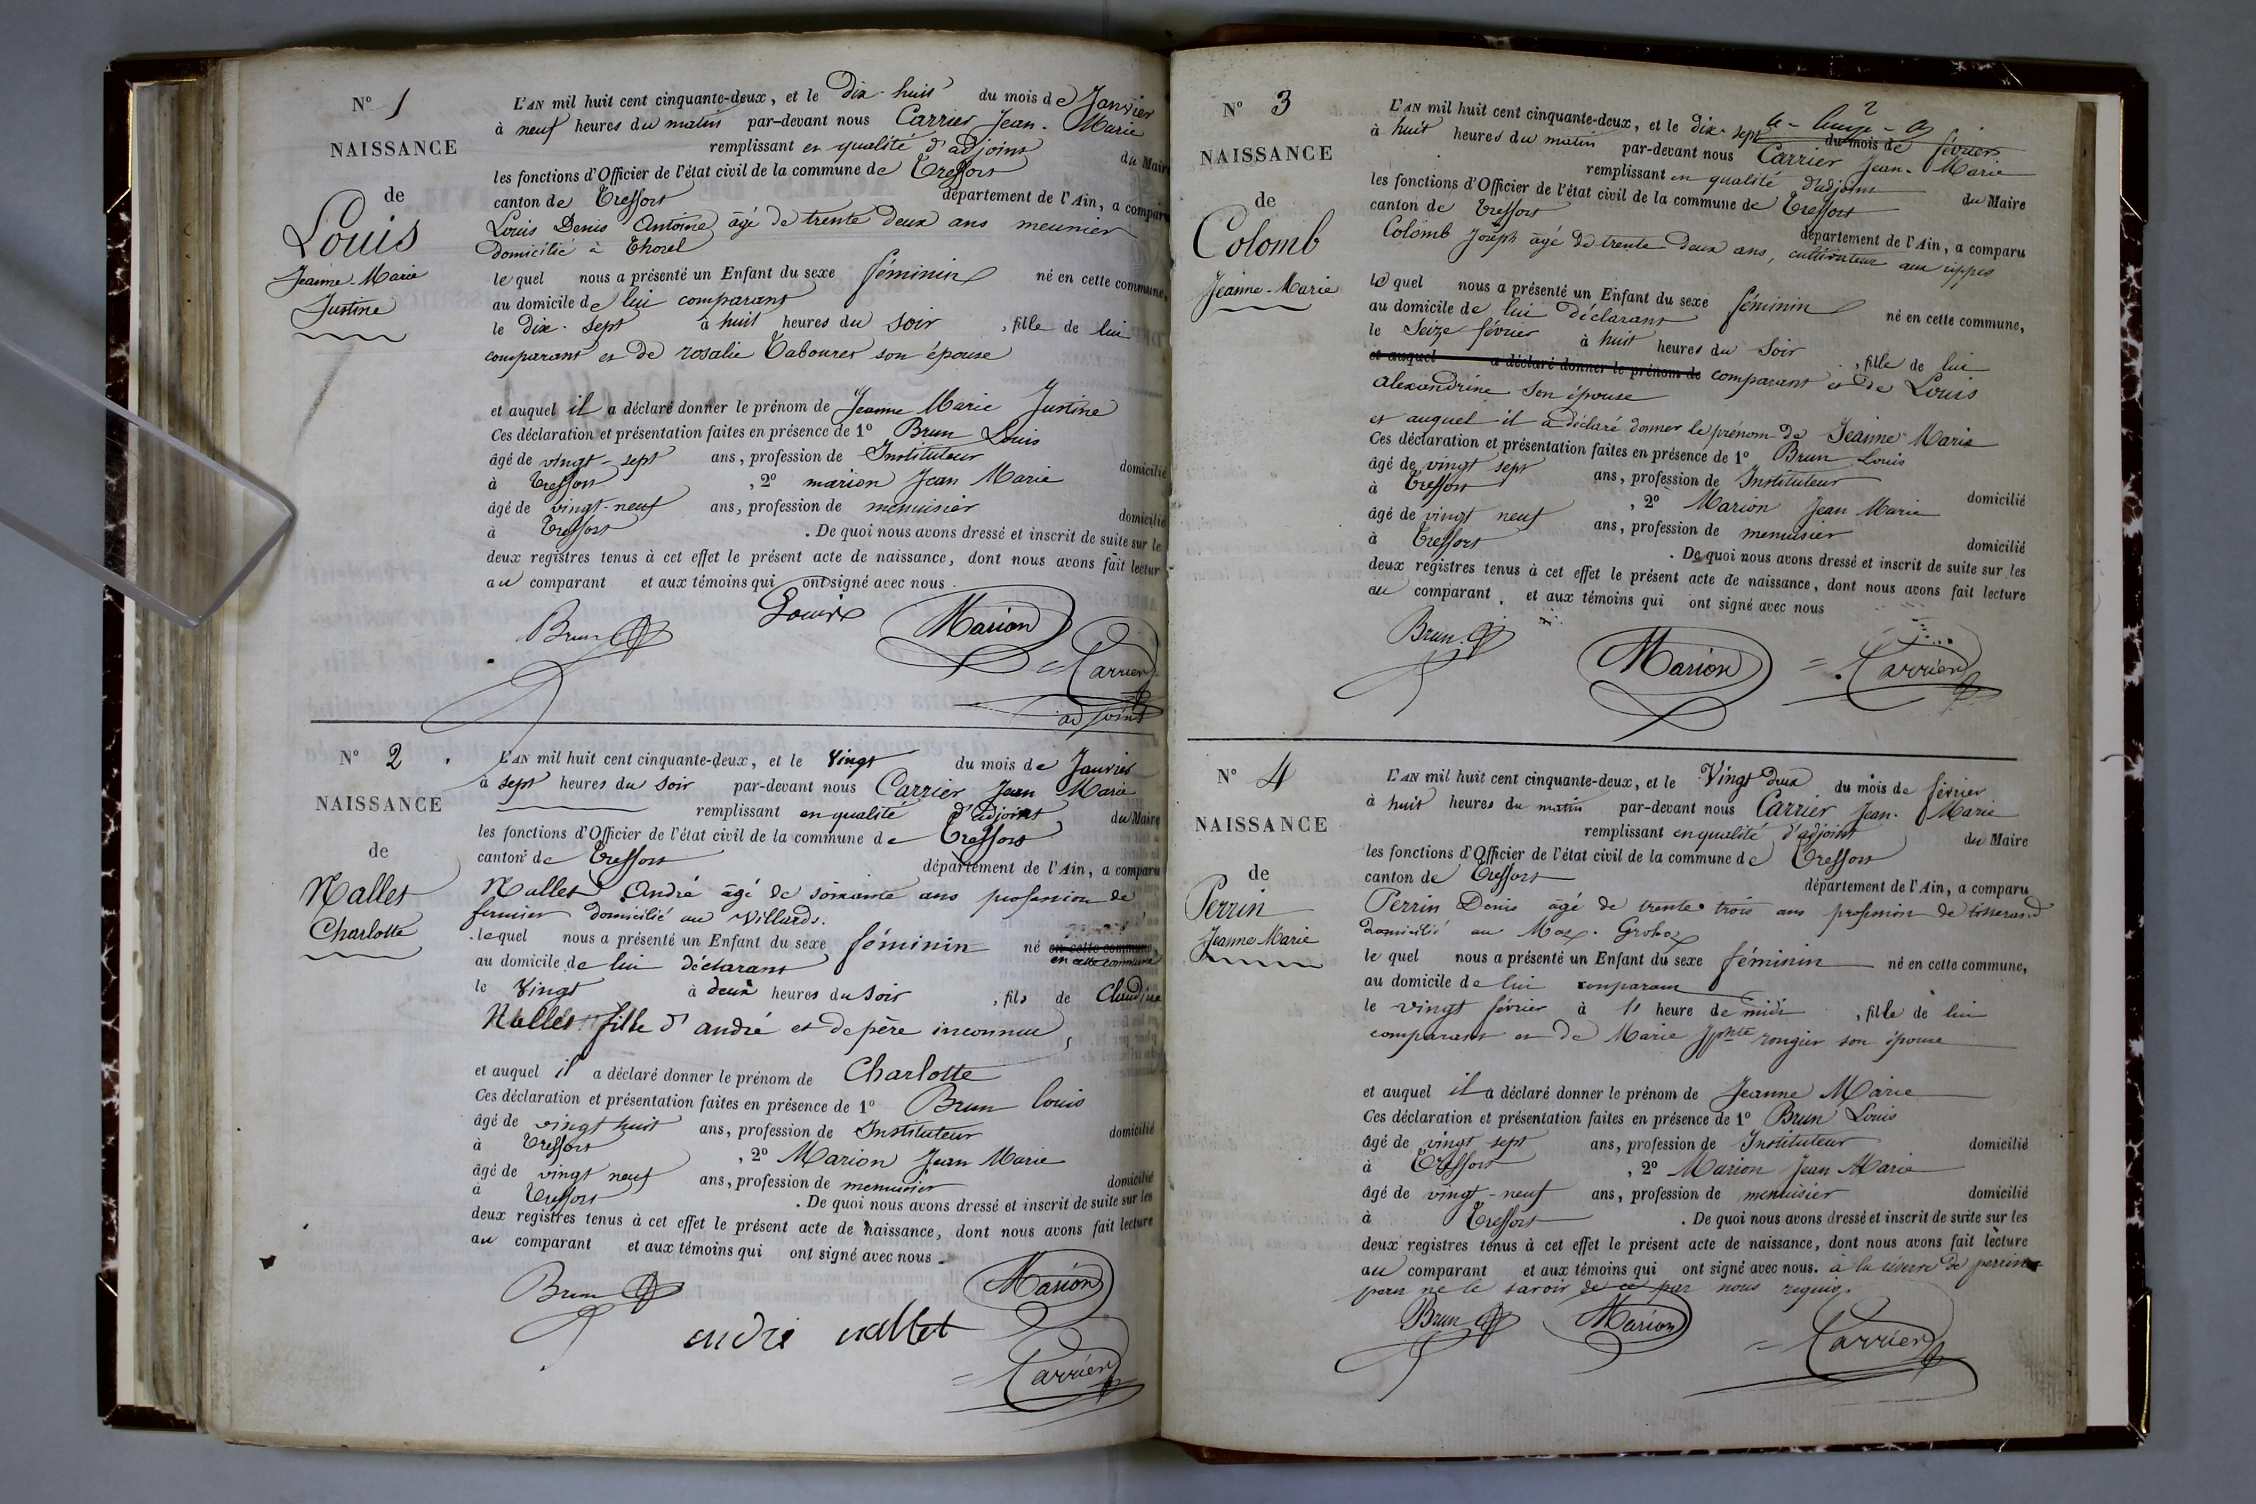 N° 1
NAISSANCE
de
Louis
Jeanne-Marie
Justine
L'AN mil huit cent cinquante-deux, et le Dix-huit du mois de Janvier
à neuf heures du matin par-devant nous Carrier Jean-Marie
remplissant en qualité d'adjoint du Maire
les fonctions d'Officier de l'état civil de la commune de Treffort
canton de Treffort département de l'Ain, a comparu
Louis Denis Antoine âgé de trente deux ans meunier
domicilié à Thorel
lequel nous a présenté un Enfant du sexe féminin né en cette commune,
au domicile de lui comparant
le dix-sept à huit heures du soir, fille de lui
comparant et de rosalie Tabouret son épouse
et auquel il a déclaré donner le prénom de Jeanne Marie Justine
Ces déclaration et présentation faites en présence de 1° Brun Louis
âgé de vingt-sept ans, profession de Instituteur domicilié
à Treffort, 2° marion Jean Marie
âgé de vingt-neuf ans, profession de menuisier domicilié
à Treffort. De quoi nous avons dressé et inscrit de suite sur le
deux registres tenus à cet effet le présent acte de naissance, dont nous avons fait lectur
au comparant et aux témoins qui ont signé avec nous.
Brun Louis Marion
Carrier
adjoint
N° 2
NAISSANCE
de
Nallet
Charlotte
L'AN mil huit cent cinquante-deux, et le Vingt du mois de Janvier
à sept heures du soir par-devant nous Carrier Jean Marie
remplissant en qualité d'adjoint du Maire
les fonctions d'Officier de l'état civil de la commune de Treffort
canton de Treffort département de l'Ain, a comparu
Nallet André âgé de soixante ans profession de
fermier domicilié au Villards.
lequel nous a présenté un Enfant du sexe féminin né en cette commune
en cette commune
au domicile de lui déclarant
le Vingt à deux heures du soir, fils de Claudine
Nallet fille d'andré et de père inconnue,
et auquel il a déclaré donner le prénom de Charlotte
Ces déclaration et présentation faites en présence de 1° Brun louis
âgé de vingt huit ans, profession de Instituteur domicilié
à Treffort, 2° Marion Jean Marie
âgé de vingt neuf ans, profession de menuisier domicilié
à Treffort. De quoi nous avons dressé et inscrit de suite sur les
deux registres tenus à cet effet le présent acte de naissance, dont nous avons fait lecture
au comparant et aux témoins qui ont signé avec nous.
Brun Marion
andré nallet
Carrier
N° 3
NAISSANCE
de
Colomb
Jeanne-Marie
L'AN mil huit cent cinquante-deux, et le dix-sept du mois de février
à huit heures du matin par-devant nous Carrier Jean-Marie
remplissant en qualité d'adjoint du Maire
les fonctions d'Officier de l'état civil de la commune de Treffort
canton de Treffort département de l'Ain, a comparu
Colomb Joseph âgé de trente deux ans, cultivateur aux rippes
lequel nous a présenté un Enfant du sexe féminin né en cette commune,
au domicile de lui déclarant
le Seize février à huit heures du Soir, fille de lui
et auquel a déclaré donner le prénom de comparant et de Louis
alexandrine son épouse
et auquel il a déclaré donner le prénom de Jeanne Marie
Ces déclaration et présentation faites en présence de 1° Brun Louis
âgé de vingt sept ans, profession de Instituteur domicilié
à Treffort, 2° Marion Jean Marie
âgé de vingt neuf ans, profession de menuisier domicilié
à Treffort. De quoi nous avons dressé et inscrit de suite sur les
deux registres tenus à cet effet le présent acte de naissance, dont nous avons fait lecture
au comparant, et aux témoins qui ont signé avec nous
Brun Marion Carrier
N° 4
NAISSANCE
de
Perrin
Jeanne Marie
L'AN mil huit cent cinquante-deux, et le Vingt Deux du mois de février
à huit heures du matin par-devant nous Carrier Jean-Marie
remplissant en qualité d'adjoint du Maire
les fonctions d'Officier de l'état civil de la commune de Treffort
canton de Treffort département de l'Ain, a comparu
Perrin Denis âgé de trente trois ans profession de tisserand
domicilié au Mas Groboz
lequel nous a présenté un Enfant du sexe féminin né en cette commune,
au domicile de lui comparant
le vingt février à 11 heure de midi, fille de lui
comparant et de Marie Jphte rongier son épouse
et auquel il a déclaré donner le prénom de Jeanne Marie
Ces déclaration et présentation faites en présence de 1° Brun Louis
âgé de vingt sept ans, profession de Instituteur domicilié
à Treffort, 2° Marion Jean Marie
âgé de vingt-neuf ans, profession de menuisier domicilié
à Treffort. De quoi nous avons dressé et inscrit de suite sur les
deux registres tenus à cet effet le présent acte de naissance, dont nous avons fait lecture
au comparant et aux témoins qui ont signé avec nous. à la réserve de perrin
pour ne le savoir de ce par nous requis.
Brun Marion Carrier